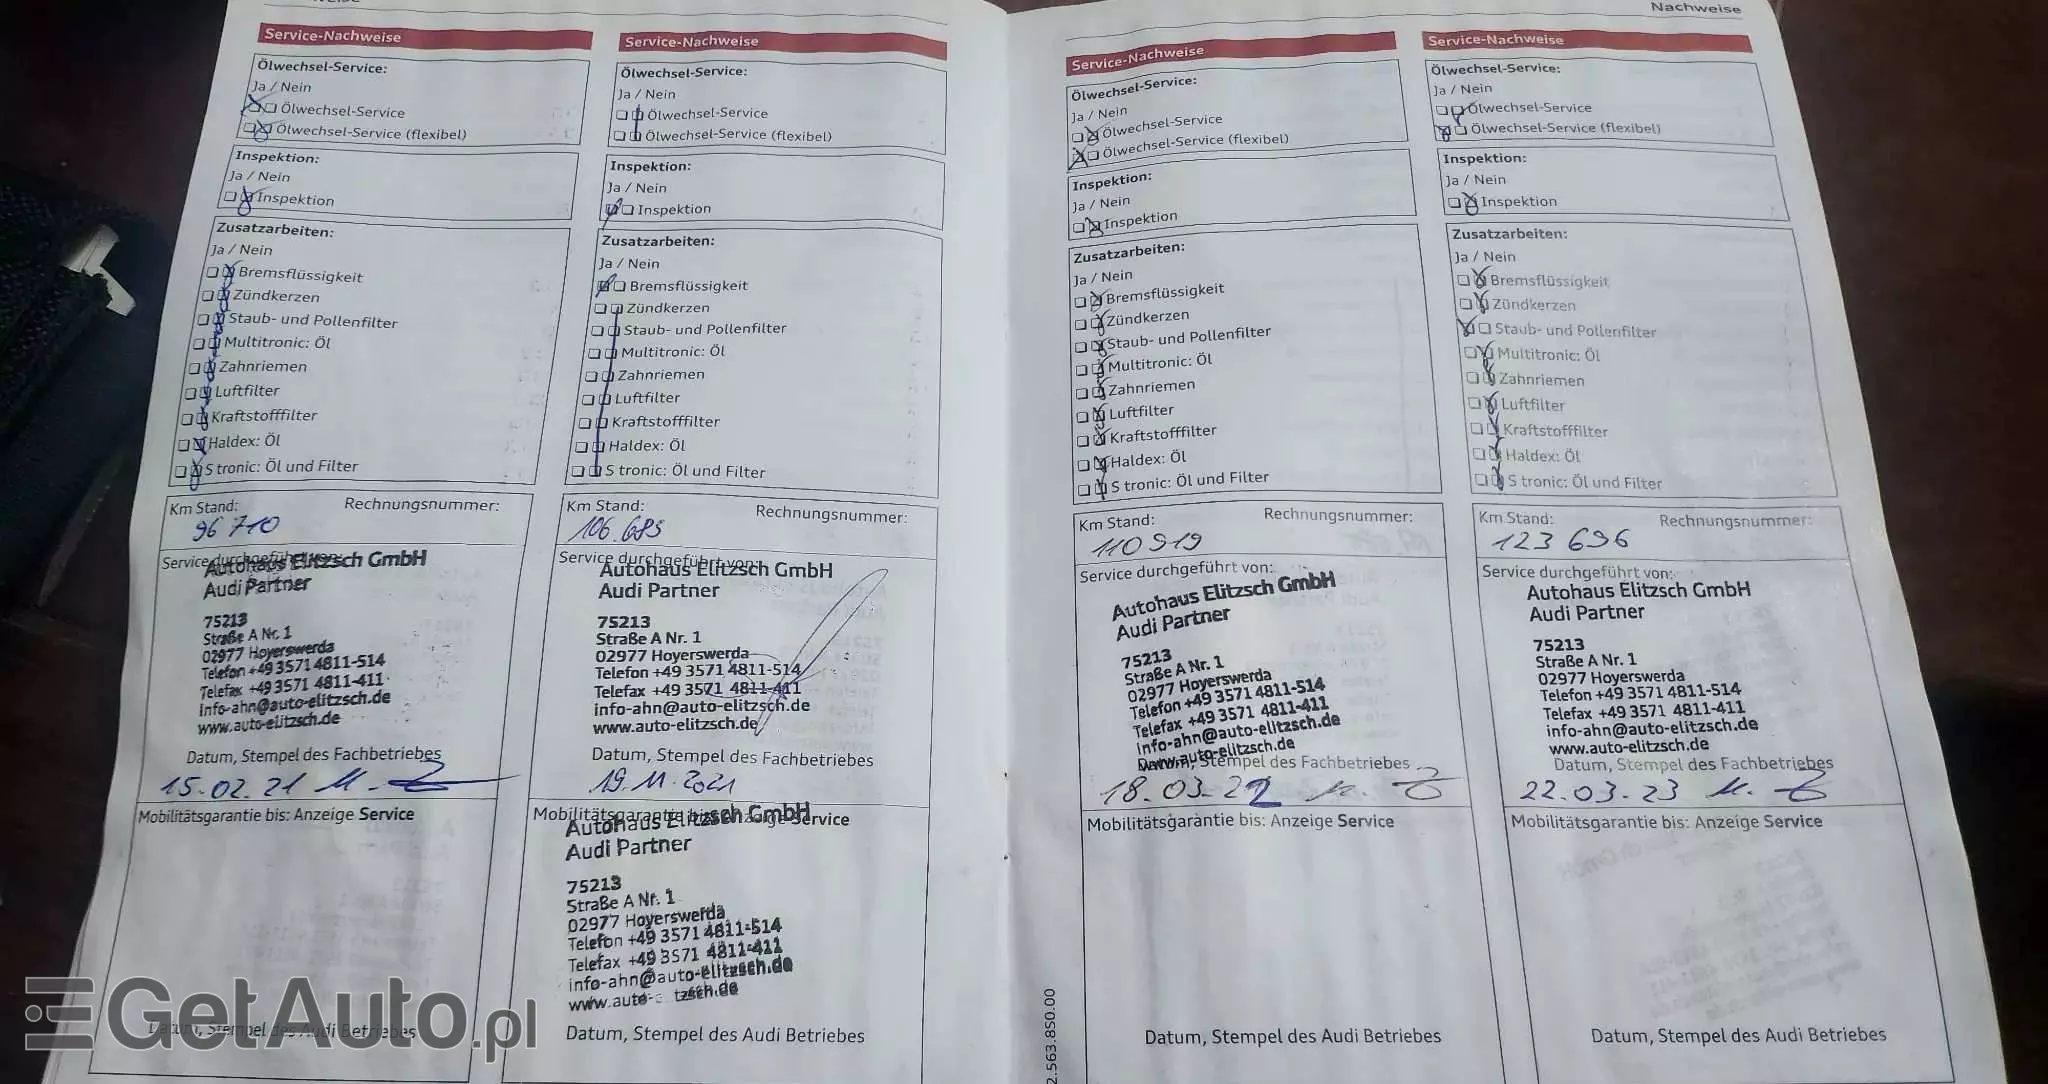 Nachweise
Service-Nachweise
Ölwechsel-Service:
Ja / Nein
Ölwechsel-Service
Ölwechsel-Service (flexibel)
Inspektion:
Ja / Nein
Inspektion
Zusatzarbeiten:
Ja / Nein
Bremsflüssigkeit
Zündkerzen
Staub- und Pollenfilter
Multitronic: Öl
Zahnriemen
Luftfilter
Kraftstofffilter
Haldex: Öl
S tronic: Öl und Filter
Km Stand: Rechnungsnummer:
96 710
Service durchgeführt von:
Autohaus Elitzsch GmbH
Audi Partner
75213
Straße A Nr. 1
02977 Hoyerswerda
Telefon +49 3571 4811-514
Telefax +49 3571 4811-411
info-ahn@auto-elitzsch.de
www.auto-elitzsch.de
Datum, Stempel des Fachbetriebes
15.02.21
Mobilitätsgarantie bis: Anzeige Service
Datum, Stempel des Audi Betriebes
Service-Nachweise
Ölwechsel-Service:
Ja / Nein
Ölwechsel-Service
Ölwechsel-Service (flexibel)
Inspektion:
Ja / Nein
Inspektion
Zusatzarbeiten:
Ja / Nein
Bremsflüssigkeit
Zündkerzen
Staub- und Pollenfilter
Multitronic: Öl
Zahnriemen
Luftfilter
Kraftstofffilter
Haldex: Öl
S tronic: Öl und Filter
Km Stand: Rechnungsnummer:
106.685
Service durchgeführt von:
Autohaus Elitzsch GmbH
Audi Partner
75213
Straße A Nr. 1
02977 Hoyerswerda
Telefon +49 3571 4811-514
Telefax +49 3571 4811-411
info-ahn@auto-elitzsch.de
www.auto-elitzsch.de
Datum, Stempel des Fachbetriebes
19.11.2021
Mobilitätsgarantie bis: Anzeige Service
Autohaus Elitzsch GmbH
Audi Partner
75213
Straße A Nr. 1
02977 Hoyerswerda
Telefon +49 3571 4811-514
Telefax +49 3571 4811-411
info-ahn@auto-elitzsch.de
www.auto-elitzsch.de
Datum, Stempel des Audi Betriebes
Service-Nachweise
Ölwechsel-Service:
Ja / Nein
Ölwechsel-Service
Ölwechsel-Service (flexibel)
Inspektion:
Ja / Nein
Inspektion
Zusatzarbeiten:
Ja / Nein
Bremsflüssigkeit
Zündkerzen
Staub- und Pollenfilter
Multitronic: Öl
Zahnriemen
Luftfilter
Kraftstofffilter
Haldex: Öl
S tronic: Öl und Filter
Km Stand: Rechnungsnummer:
110 919
Service durchgeführt von:
Autohaus Elitzsch GmbH
Audi Partner
75213
Straße A Nr. 1
02977 Hoyerswerda
Telefon +49 3571 4811-514
Telefax +49 3571 4811-411
info-ahn@auto-elitzsch.de
www.auto-elitzsch.de
Datum, Stempel des Fachbetriebes
18.03.22
Mobilitätsgarantie bis: Anzeige Service
Datum, Stempel des Audi Betriebes
2.563.850.00
Service-Nachweise
Ölwechsel-Service:
Ja / Nein
Ölwechsel-Service
Ölwechsel-Service (flexibel)
Inspektion:
Ja / Nein
Inspektion
Zusatzarbeiten:
Ja / Nein
Bremsflüssigkeit
Zündkerzen
Staub- und Pollenfilter
Multitronic: Öl
Zahnriemen
Luftfilter
Kraftstofffilter
Haldex: Öl
S tronic: Öl und Filter
Km Stand: Rechnungsnummer:
123 696
Service durchgeführt von:
Autohaus Elitzsch GmbH
Audi Partner
75213
Straße A Nr. 1
02977 Hoyerswerda
Telefon +49 3571 4811-514
Telefax +49 3571 4811-411
info-ahn@auto-elitzsch.de
www.auto-elitzsch.de
Datum, Stempel des Fachbetriebes
22.03.23
Mobilitätsgarantie bis: Anzeige Service
Datum, Stempel des Audi Betriebes
GetAuto.pl